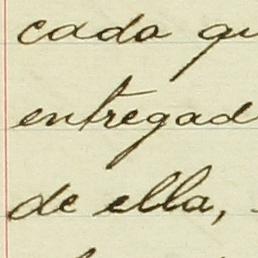 cada qu
entregad
de ella,